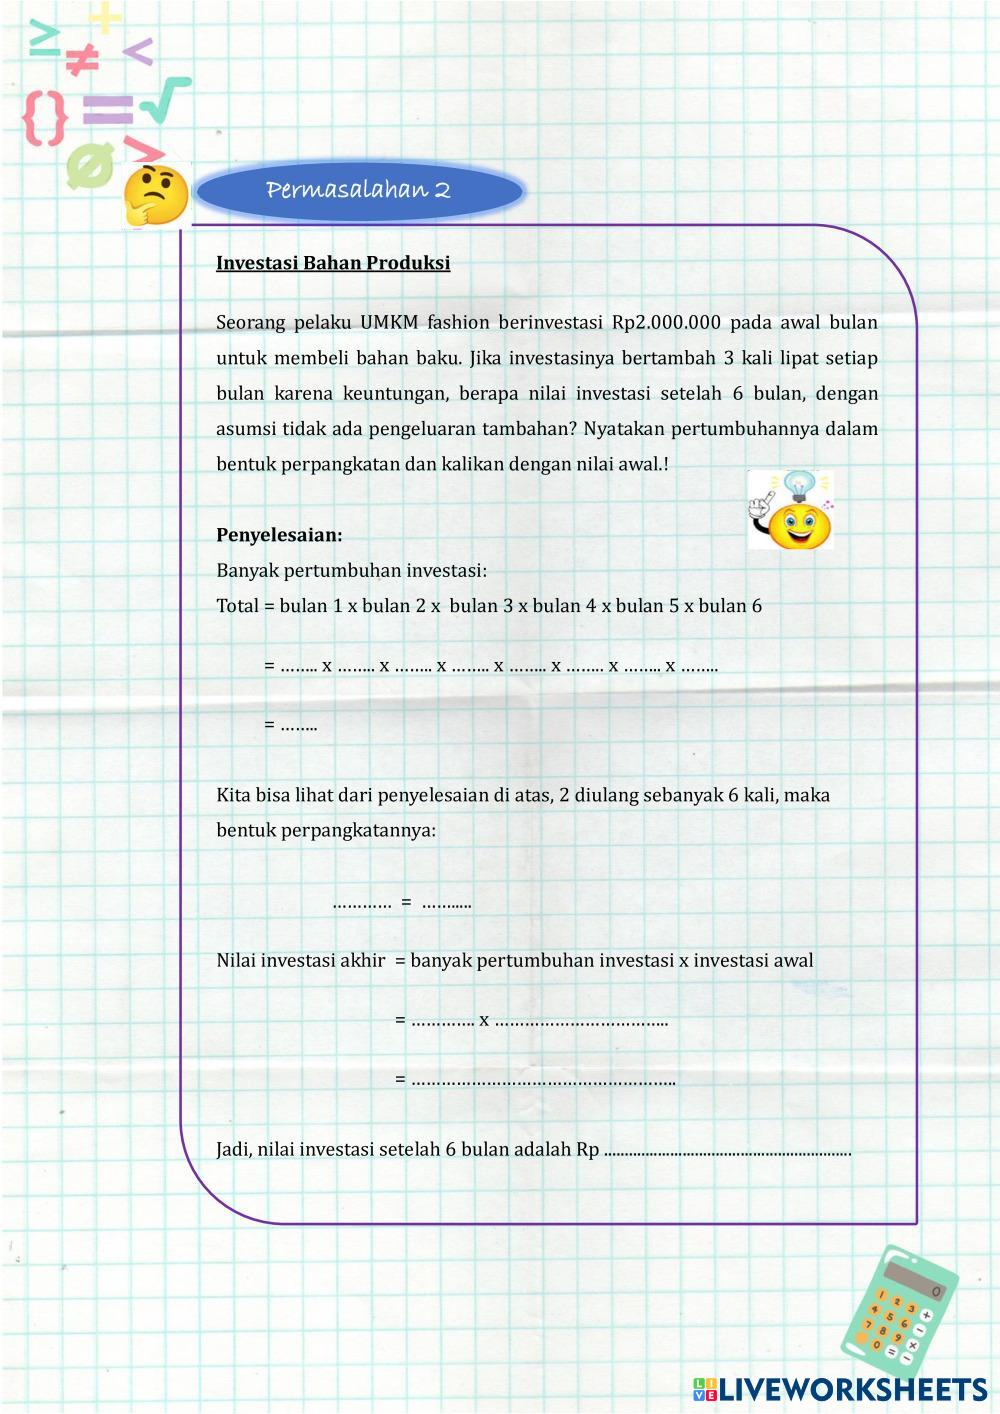 Permasalahan 2
Investasi Bahan Produksi
Seorang pelaku UMKM fashion berinvestasi Rp2.000.000 pada awal bulan
untuk membeli bahan baku. Jika investasinya bertambah 3 kali lipat setiap
bulan karena keuntungan, berapa nilai investasi setelah 6 bulan, dengan
asumsi tidak ada pengeluaran tambahan? Nyatakan pertumbuhannya dalam
bentuk perpangkatan dan kalikan dengan nilai awal.!
Penyelesaian:
Banyak pertumbuhan investasi:
Total = bulan 1 x bulan 2 x bulan 3 x bulan 4 x bulan 5 x bulan 6
= …….. x …….. x …….. x …….. x …….. x …….. x …….. x ……..
= ……..
Kita bisa lihat dari penyelesaian di atas, 2 diulang sebanyak 6 kali, maka
bentuk perpangkatannya:
………… = …….....
Nilai investasi akhir = banyak pertumbuhan investasi x investasi awal
= …………. x ……………………………..
= ……………………………………………..
Jadi, nilai investasi setelah 6 bulan adalah Rp ............................................................
0
1 2 3 +
4 5 6 −
7 8 9 x
0 = −
LIVEWORKSHEETS